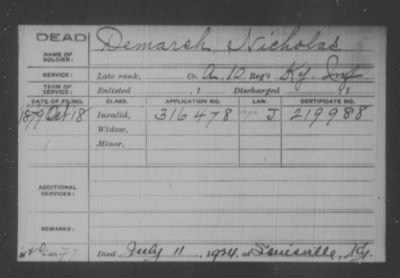 DEAD
NAME OF SOLDIER: Demarsh, Nicholas
SERVICE: Late rank, Co. A. 10 Reg't Ky. Inf.
TERM OF SERVICE: Enlisted , 1 Discharged , 1
DATE OF FILING. CLASS. APPLICATION NO. LAW. CERTIFICATE NO.
1879 Oct 18 Invalid, 316478 J 219988
Widow,
Minor,
ADDITIONAL SERVICES:
REMARKS:
Died July 11, 1924, at Louisville, Ky.